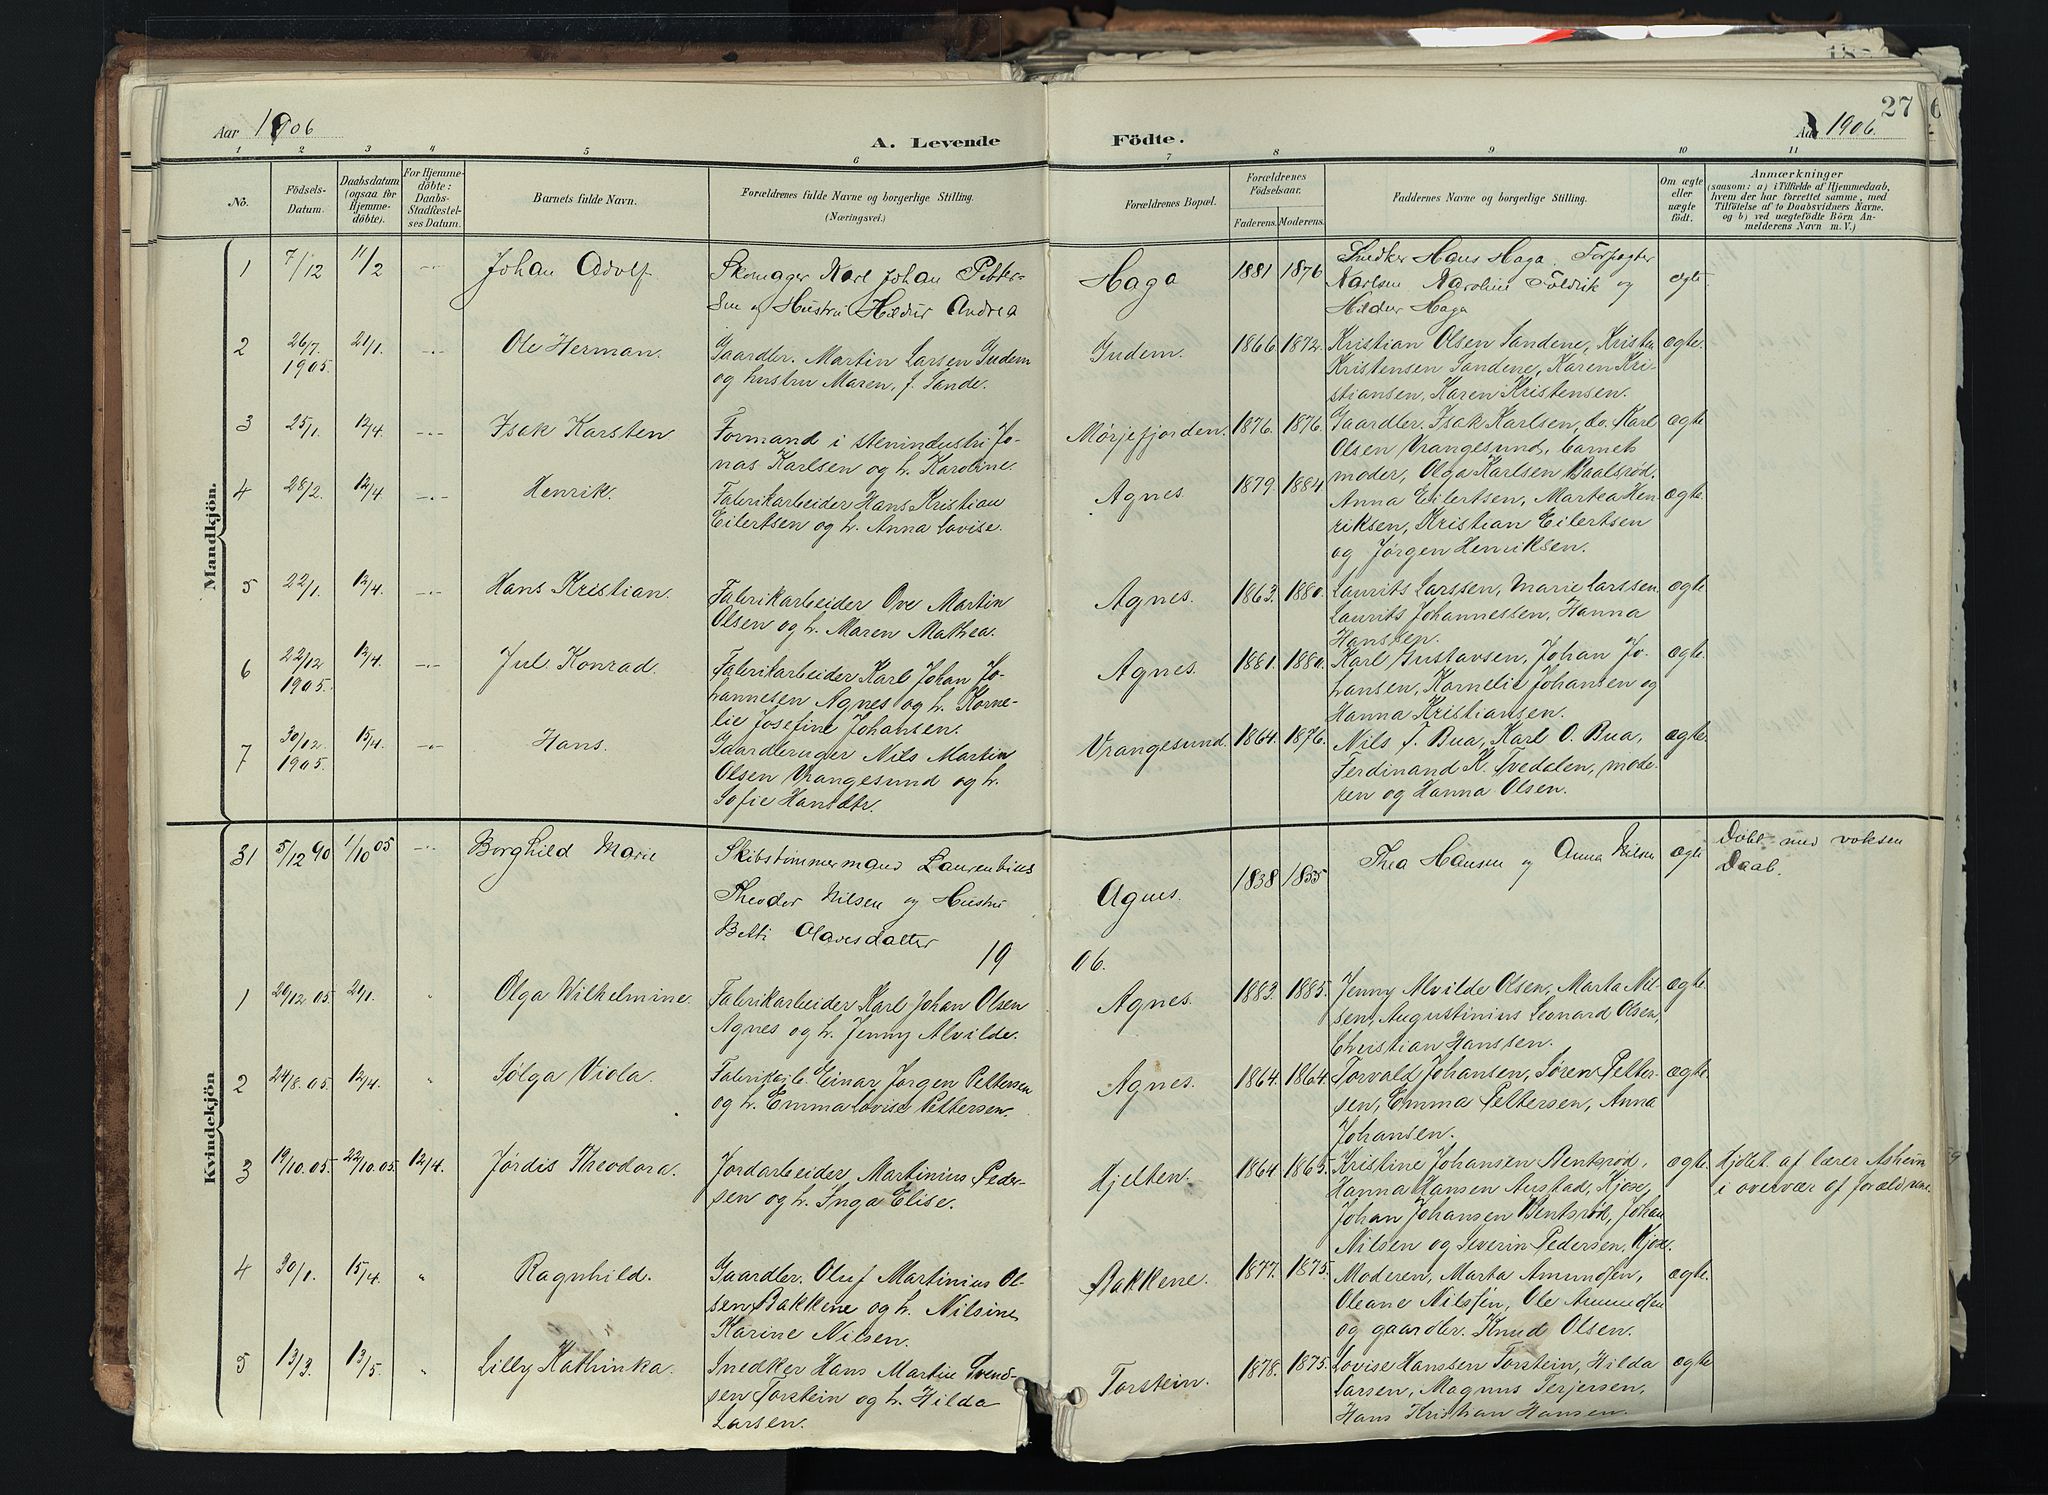 Aar 1906
A. Levende
Födte.
Aar 1906.
27
1 2 3 4 5 6 7 8 9 10 11
No.
Födsels-Datum.
Daabsdatum (ogsaa for Hjemme-döbte).
For Hjemme-döbte: Daabs-Stadfæstel-ses Datum.
Barnets fulde Navn.
Forældrenes fulde Navne og borgerlige Stilling.
(Næringsvei.)
Forældrenes Bopæl.
Forældrenes Födselsaar.
Faderens. Moderens.
Faddernes Navne og borgerlige Stilling.
Om ægte eller uægte födt.
Anmærkninger
(saasom: a) i Tilfælde af Hjemmedaab,
hvem der har forrettet samme, med
Tilföielse af to Daabsvidners Navne,
og b) ved uægtefödte Börn An-
melderens Navn m. V.)
Mandkjön.
1 7/12 11/2 -·- Johan Adolf
Skomager Karl Johan Petter-
sen og Hustru Hildur Andrea
Haga 1881 1876
Snedker Hans Haga. Forpagter
Karlsen Karoline og
Hildur Haga
ægte
2 26/7. 1905. 21/1. -·- Ole Herman.
Gaardbr. Martin Larsen Gudem
og hustru Maren, f. Sande.
Gudem. 1866 1872.
Kristian Olsen Sandene,
Kristensen Sandene, Karen Kri-
stiansen, Karen Kristensen.
ægte.
3 25/1. 12/4. -·- Isak Karsten
Formand i stenindustri Jo-
nas Karlsen og h. Karoline.
Mørjefjorden. 1876. 1876.
Gaardbr. Isak Karlsen, do. Karl
Olsen Vrangesund, barnets
moder, Olga Karlsen Baalsrød.
ægte
4 28/2. 12/4. -·- Henrik.
Fabrikarbeider Hans Kristian
Eilertsen og h. Anna Lovise.
Agnes. 1879 1884
Anna Eilertsen, Martea Hen-
riksen, Kristian Eilertsen
og Jørgen Henriksen.
ægte.
5 22/1. 12/4. -·- Hans Kristian.
Fabrikarbeider Ove Martin
Olsen og h. Maren Mathea.
Agnes. 1863. 1880.
Laurits Larssen, Marie Larssen
Laurits Johannessen, Hanna
Hanssen.
ægte.
6 22/12 1905. 12/4. -·- Jul Konrad.
Fabrikarbeider Karl Johan Jo-
hannesen Agnes og h. Korne-
lie Josefine Johansen.
Agnes. 1881. 1880.
Karl Gustavsen, Johan Jo-
hansen, Kornelie Johansen og
Hanna Kristiansen.
ægte
7 30/12 1905. 15/4. -·- Hans.
Gaardbruger Nils Martin
Olsen Vrangesund og h.
Sofie Hansdtr.
Vrangesund. 1864. 1876.
Nils J. Bua, Karl O. Bua,
Ferdinand K. Tvedalen, mode-
ren og Hanna Olsen.
ægte.
Kvindekjön
31 5/12 90 1/10 05 -·- Borghild Marie
Skibstømmermand Laurentius
Theodor Nilsen og Hustru
Betti Olavesdatter
Agnes. 1838 1855
Thea Hansen og Anna Nilsen
ægte
Døbt med voksen
Daab.
1906.
1 20/12 05 21/1. " Olga Wilhelmine.
Fabrikarbeider Karl Johan Olsen
Agnes og h. Jenny Alvilde.
Agnes. 1883. 1885.
Jenny Alvilde Olsen, Marta Nil-
sen, Augustinius Leonard Olsen,
Christian Hanssen.
ægte
2 24/8. 05 12/4. " Sølga Viola.
Fabrikarb. Einar Jørgen Pettersen
og h. Emma Lovise Pettersen.
Agnes. 1864. 1864.
Torvald Johansen, Søren Petter-
sen, Emma Pettersen, Anna
Johansen.
ægte.
3 19/10. 05. 22/10. 05. 12/4. Jørdis Theodora.
Jordarbeider Martinius Peder-
sen og h. Inga Elise.
Hjelten. 1864 1865.
Kristine Johansen Bentsrød,
Hanna Hansen Austad, Kjose,
Johan Johansen Bentsrød, Johan
Nilsen og Severin Pedersen, Kjose.
ægte.
Hjdbt. af lærer Asheim
i overvær af forældrene.
4 30/1. 15/4. " Ragnhild.
Gaardbr. Oluf Martinius Ol-
sen Bakkene og h. Nilsine
Karine Nilsen.
Bakkene. 1877. 1875.
Moderen, Marta Amundsen,
Oleane Nilssen, Ole Amundsen
og gaardbr. Knud Olsen.
ægte.
5 13/3. 13/5. " Lilly Kathinka.
Snedker Hans Martin Svend-
sen Torstein og h. Hilda
Larsen.
Torstein. 1878. 1875.
Lovise Hanssen Torstein, Hilda
Larsen, Magnus Terjersen,
Hans Kristian Hansen.
ægte